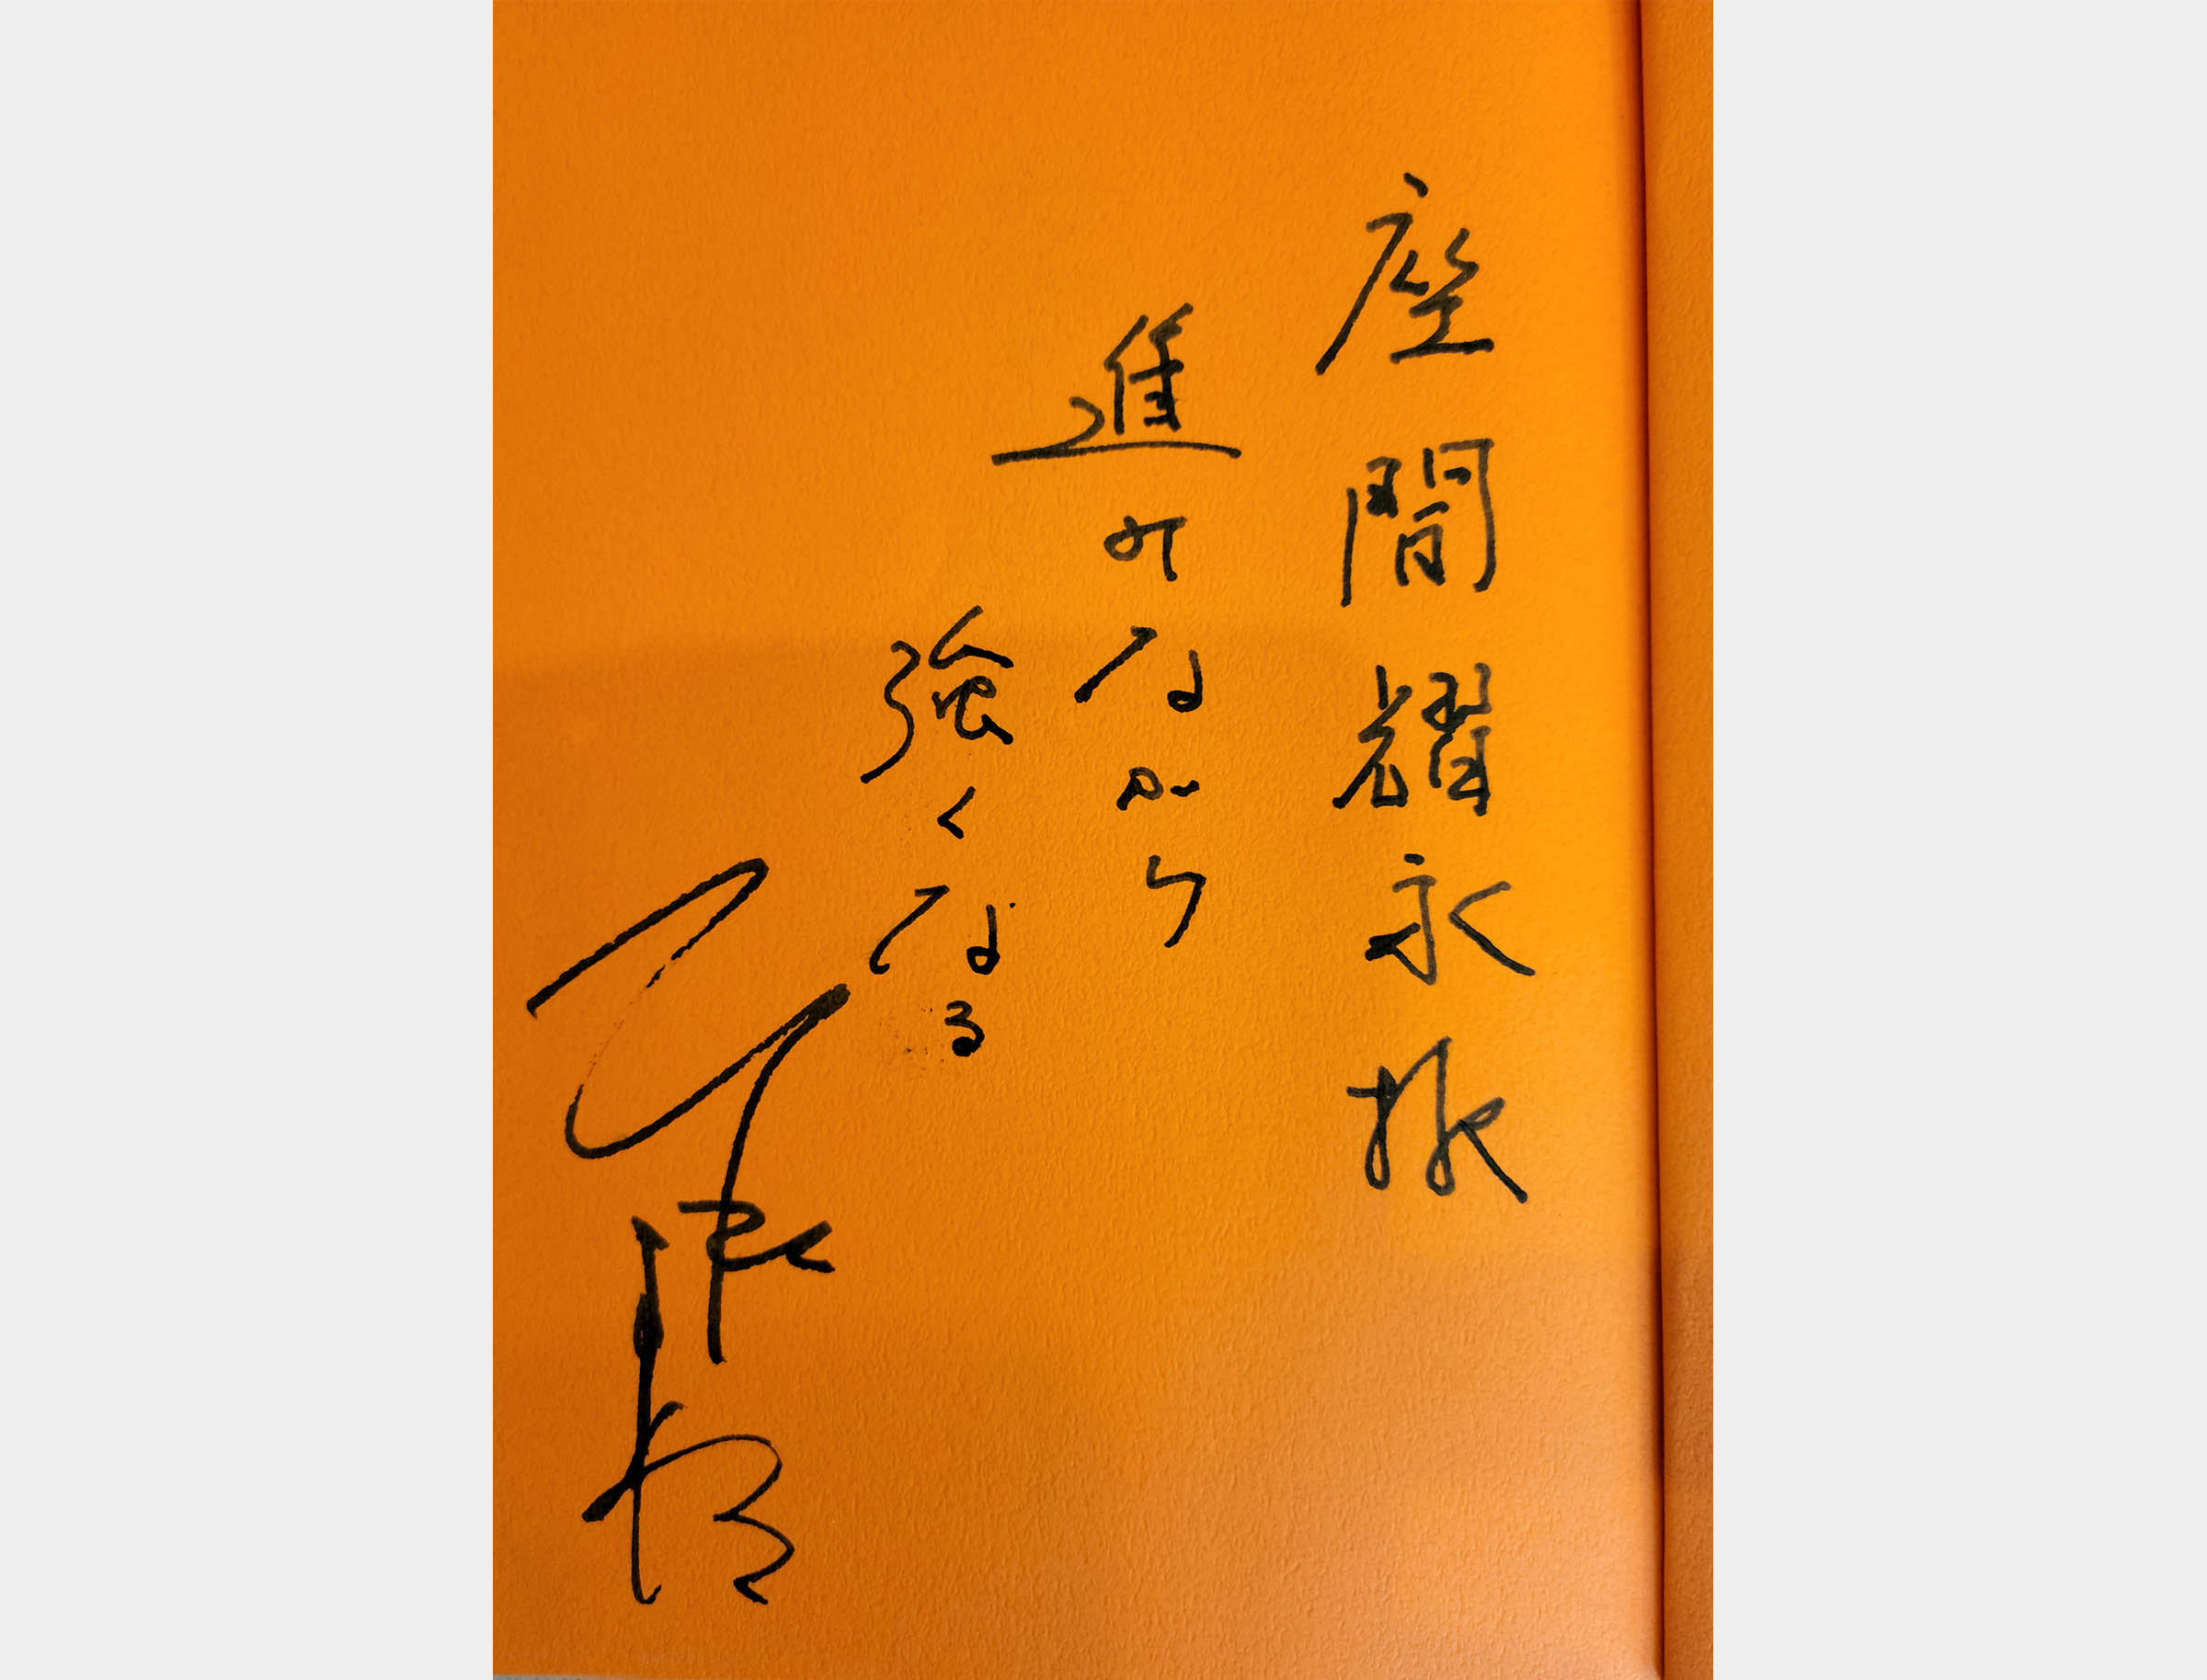 座間耀永 様
進みながら
強くなる